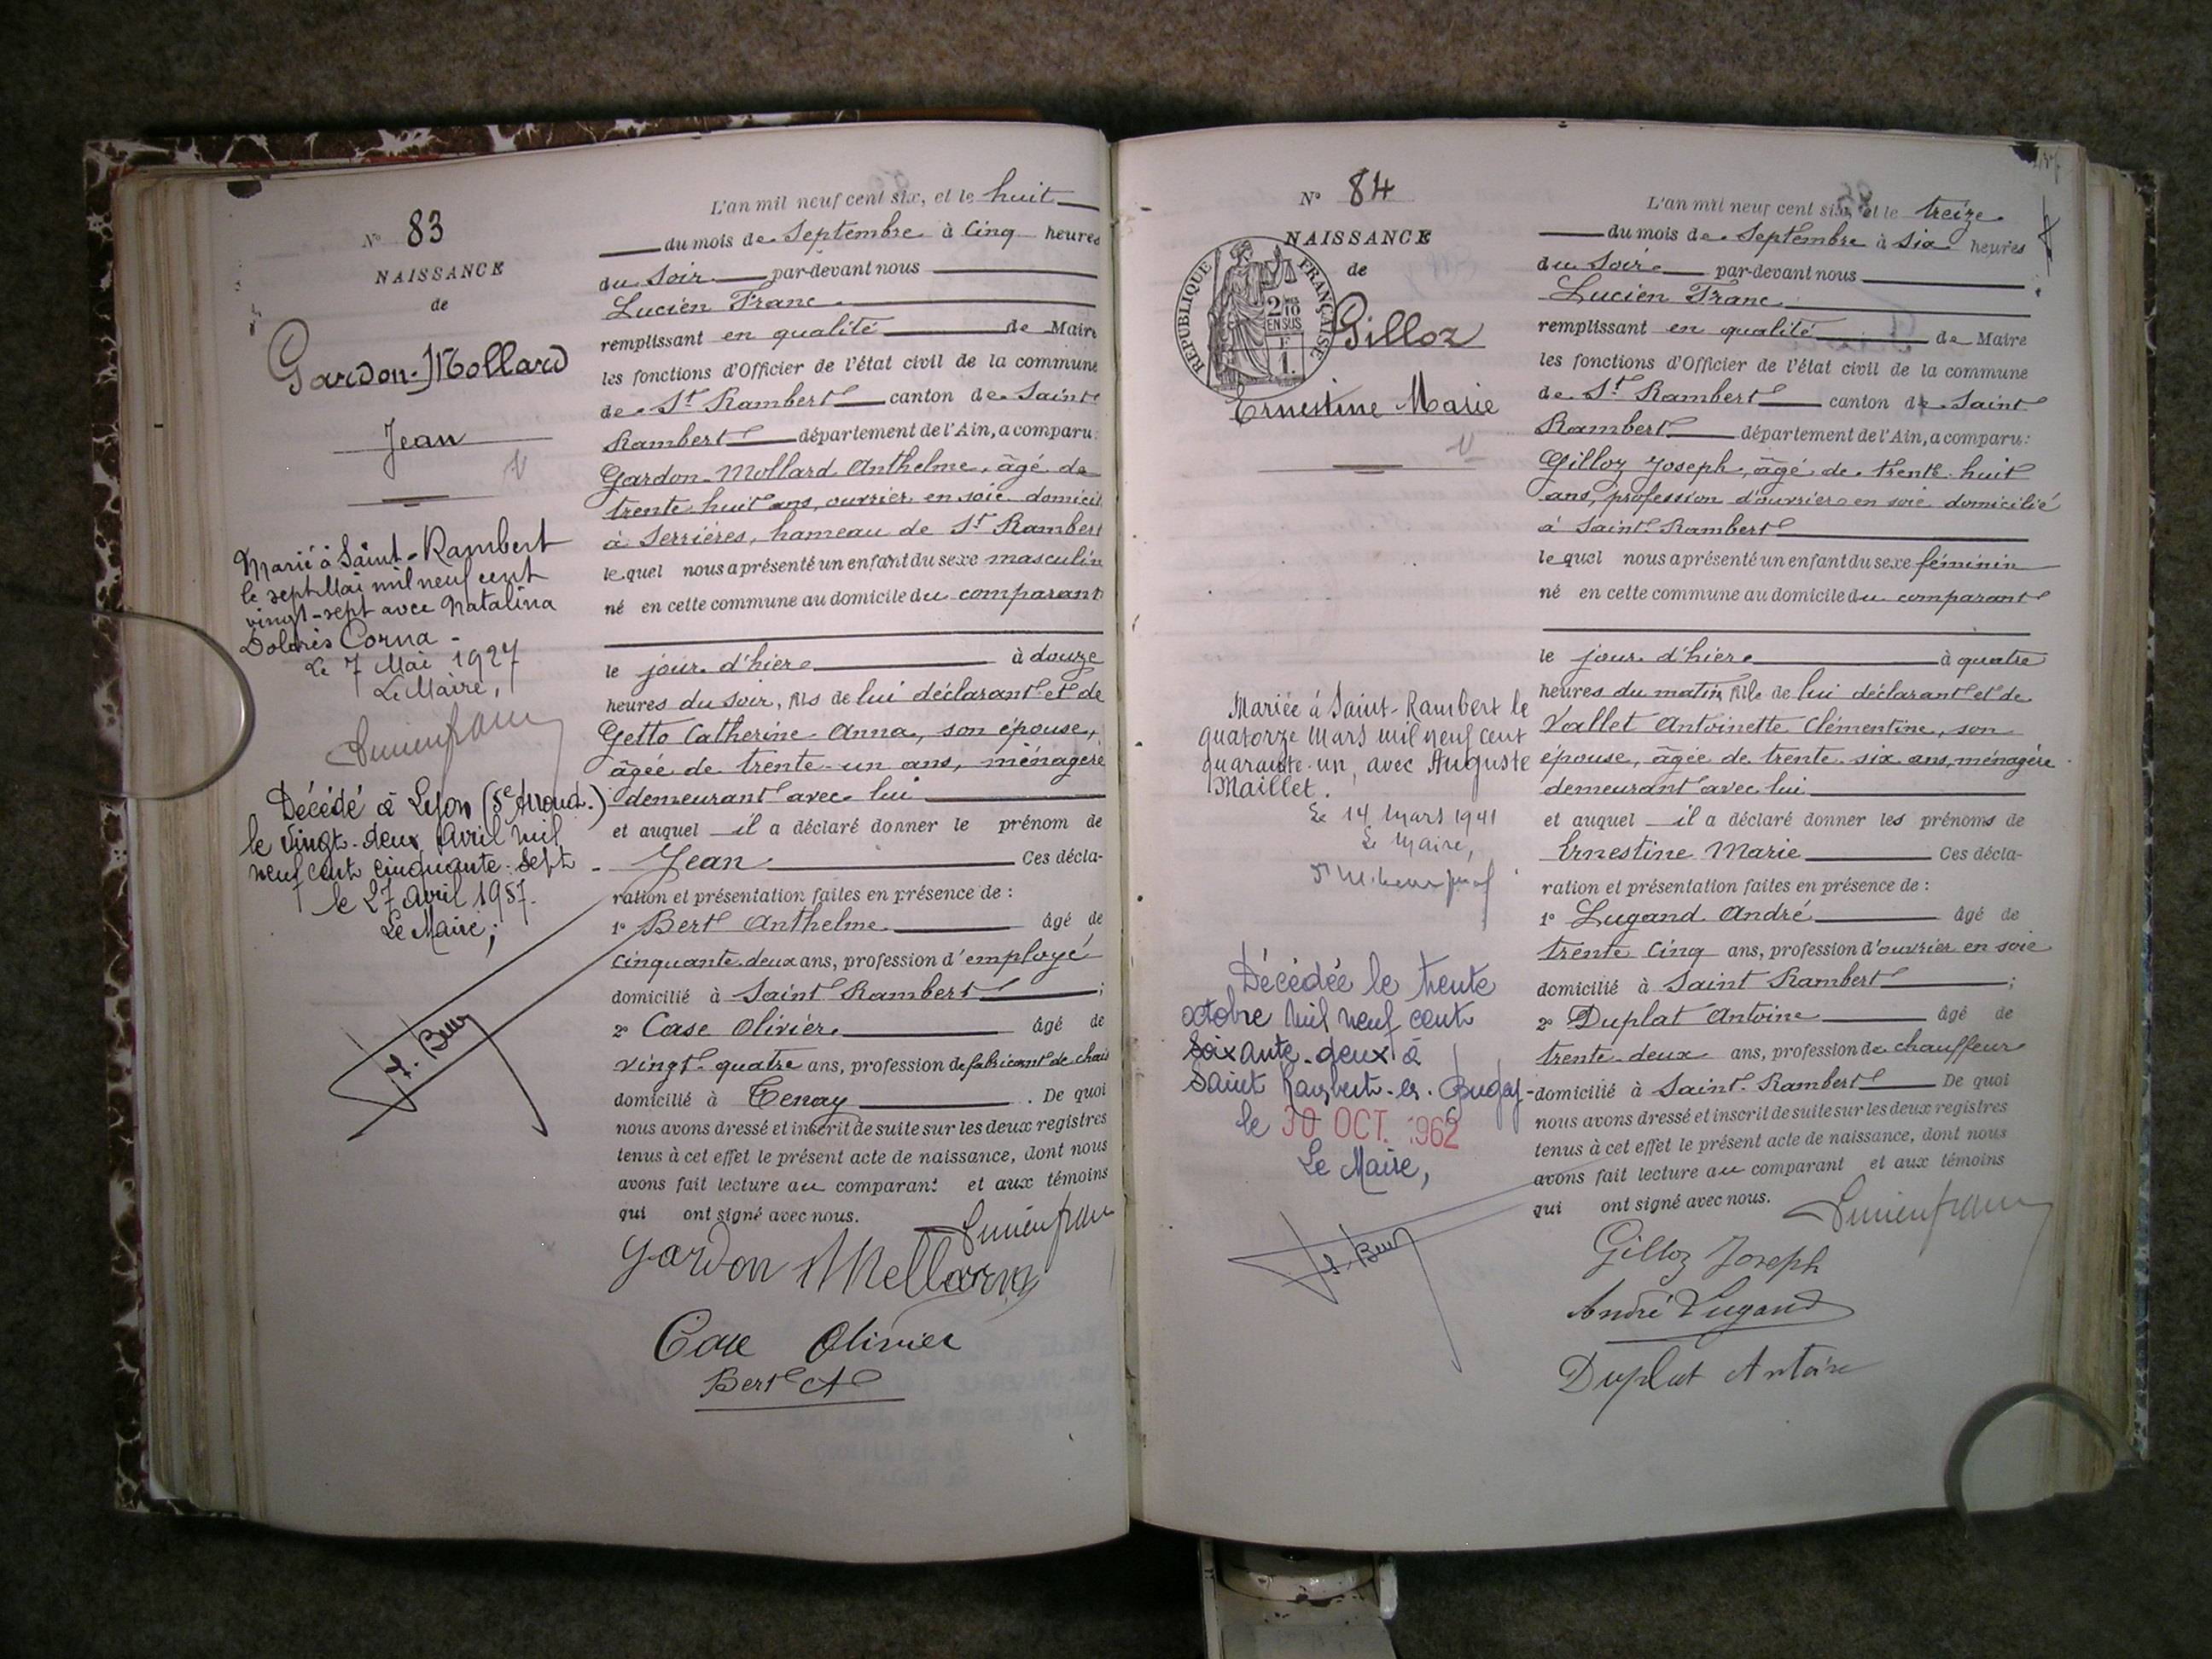 N° 83
NAISSANCE
de
Gardon-Mollard
Jean
Marié à Saint-Rambert
le sept Mai mil neuf cent
vingt-sept avec Natalina
Dolorès Corna -
Le 7 Mai 1927
Le Maire,
Lucien Franc
Décédé à Lyon (5e Arrond.)
le vingt-deux Avril mil
neuf cent cinquante-sept
le 27 Avril 1957.
Le Maire,
L'an mil neuf cent six, et le huit
du mois de Septembre à cinq heures
du soir par-devant nous
Lucien Franc
remplissant en qualité de Maire
les fonctions d'Officier de l'état civil de la commune
de St Rambert canton de Saint
Rambert département de l'Ain, a comparu:
Gardon-Mollard Anthelme, âgé de
trente huit ans, ouvrier en soie domicil
à Serrières, hameau de St Rambert
lequel nous a présenté un enfant du sexe masculin
né en cette commune au domicile du comparant
le jour d'hier à douze
heures du soir, fils de lui déclarant et de
Getto Catherine Anna, son épouse,
âgée de trente-un ans, ménagère
demeurant avec lui
et auquel il a déclaré donner le prénom de
Jean Ces décla-
ration et présentation faites en présence de :
1° Bert Anthelme âgé de
cinquante deux ans, profession d'employé
domicilié à Saint Rambert ;
2° Case Olivier âgé de
vingt-quatre ans, profession de fabricant de chais
domicilié à Tenay . De quoi
nous avons dressé et inscrit de suite sur les deux registres
tenus à cet effet le présent acte de naissance, dont nous
avons fait lecture au comparant et aux témoins
qui ont signé avec nous.
Lucien Franc
Gardon Mollard
Case Olivier
Bert A
N° 84
NAISSANCE
de
RÉPUBLIQUE FRANÇAISE
2/10
EN SUS
F
1.
Gilloz
Ernestine Marie
Mariée à Saint-Rambert le
quatorze Mars mil neuf cent
quarante-un, avec Auguste
Maillet.
Le 14 Mars 1941
Le Maire,
Décédée le trente
octobre mil neuf cent
soixante-deux à
Saint Rambert-en-Bugey
le 30 OCT. 1962
Le Maire,
L'an mil neuf cent six, et le treize
du mois de Septembre à six heures
du soir par-devant nous
Lucien Franc
remplissant en qualité de Maire
les fonctions d'Officier de l'état civil de la commune
de St Rambert canton de Saint
Rambert département de l'Ain, a comparu:
Gilloz Joseph, âgé de trente-huit
ans, profession d'ouvrier en soie domicilié
à Saint Rambert
lequel nous a présenté un enfant du sexe féminin
né en cette commune au domicile du comparant
le jour d'hier à quatre
heures du matin, fille de lui déclarant et de
Vallet Antoinette Clémentine, son
épouse, âgée de trente-six ans, ménagère
demeurant avec lui
et auquel il a déclaré donner les prénoms de
Ernestine Marie Ces décla-
ration et présentation faites en présence de :
1° Lugand André âgé de
trente cinq ans, profession d'ouvrier en soie
domicilié à Saint Rambert ;
2° Duplat Antoine âgé de
trente-deux ans, profession de chauffeur
domicilié à Saint-Rambert De quoi
nous avons dressé et inscrit de suite sur les deux registres
tenus à cet effet le présent acte de naissance, dont nous
avons fait lecture au comparant et aux témoins
qui ont signé avec nous.
Lucien Franc
Gilloz Joseph
André Lugand
Duplat Antoine